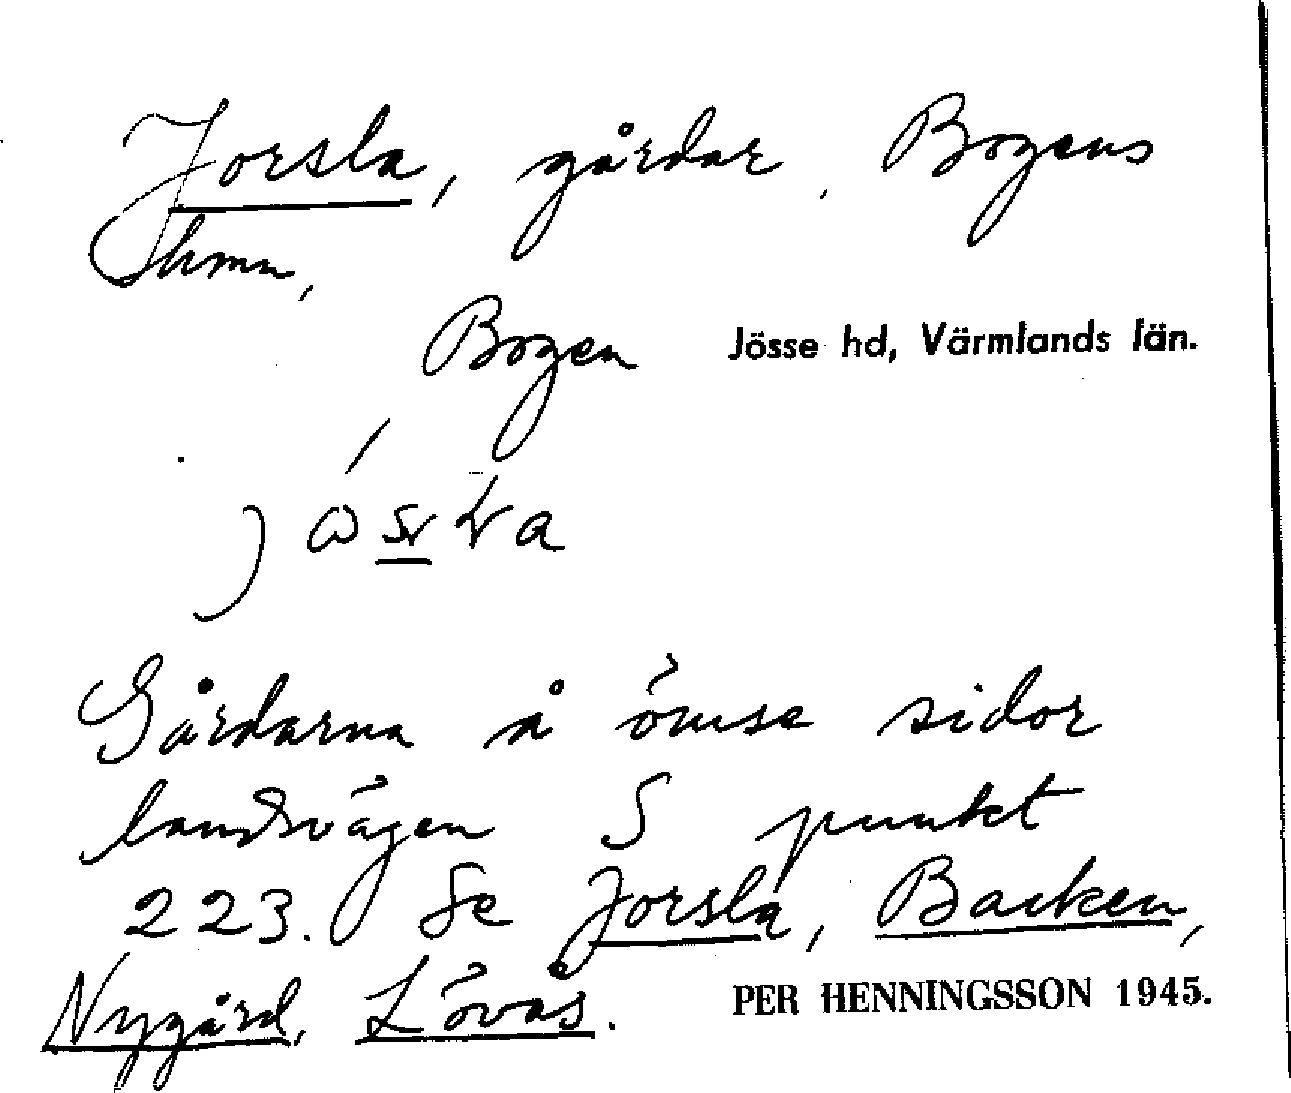 Jorsla, gårdar, Bogens
Bogen Jösse hd, Värmlands län.
Gårdarna å ömse sidor
landsvägen S punkt
223. Se Jorsla, Backen,
Nygård, Lövås. PER HENNINGSSON 1945.